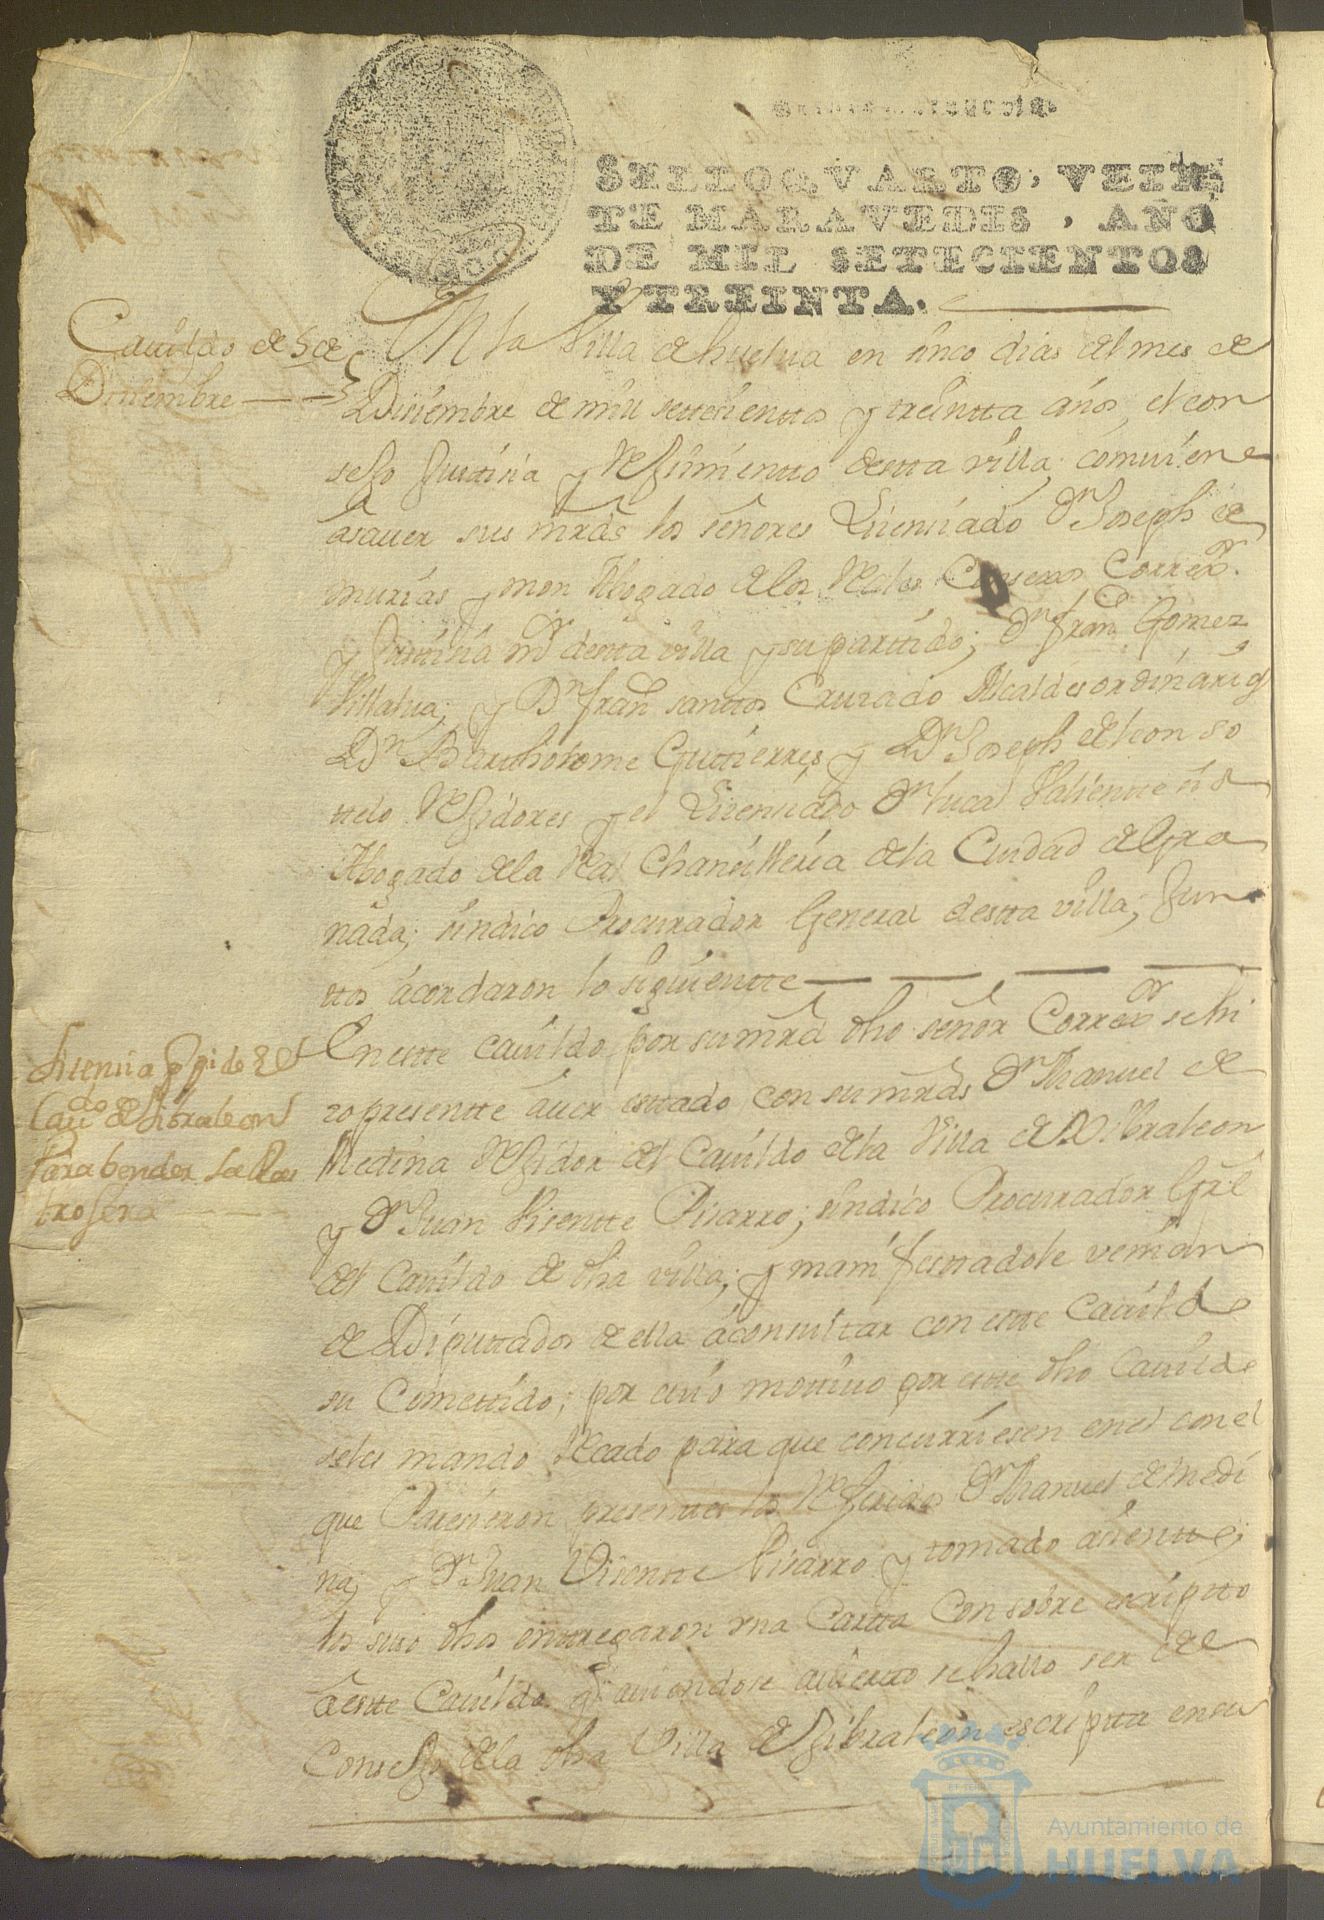 SELLO QVARTO, VEIN
TE MARAVEDIS, AÑO
DE MIL SETECIENTOS
Y TREINTA.
Cauildo de 5 de
Disiembre
En la Villa de huelua en sinco dias del mes de
Disiembre de mill settesienttos y treintta años, el con
sejo Justisia y Rejimientto destta villa combiene
asauer sus mrds los señores Lisensiado Dn Joseph de
murias y mon Abogado de los Reales Consexos Correxor
y Justisia mor destta villa y su parttido; Dn Franco Gomez
Villalua; y Dn Franco santtos Cruzado Alcaldes ordinarios
Dn Bartholome Gutierres y Dn Joseph de leon so
ttelo Rejidores y el Lisensiado Dn lucas Valientte
Abogado de la Real Chansilleria de la Ciudad de Gra
nada; sindico Procurador General destta villa; Jun
ttos acordaron lo siguientte
Lisensia q pide el
Cauo de Jibraleon
Para bender
En estte cauildo por su mrd dho señor Correxor se hi
zo presentte auer esttado con su mrds Dn Manuel de
Medina Rejidor del Cauildo de la Villa de Jibraleon
y Dn Juan Visentte Pisarro; sindico Procurador Grl
del Cauildo de dha villa; y manifesttadole venian
de Diputtados de ella a consultar con estte Cauildo
su Comettido; por cuio mottiuo por estte dho Cauildo
se les mando Recado para que concurriesen en el con el
que Paresieron presenttes los Referidos Dn Manuel de Medi
na; y Dn Juan Visentte Pisarro y tomado asientto;
los suso dhos enttregaron vna Cartta Con sobre escriptto
a estte Cauildo q auiendose auiertto se hallo ser del
Consejo de la dha Villa de Jibraleon escriptta en su
Ayuntamiento de
HUELVA